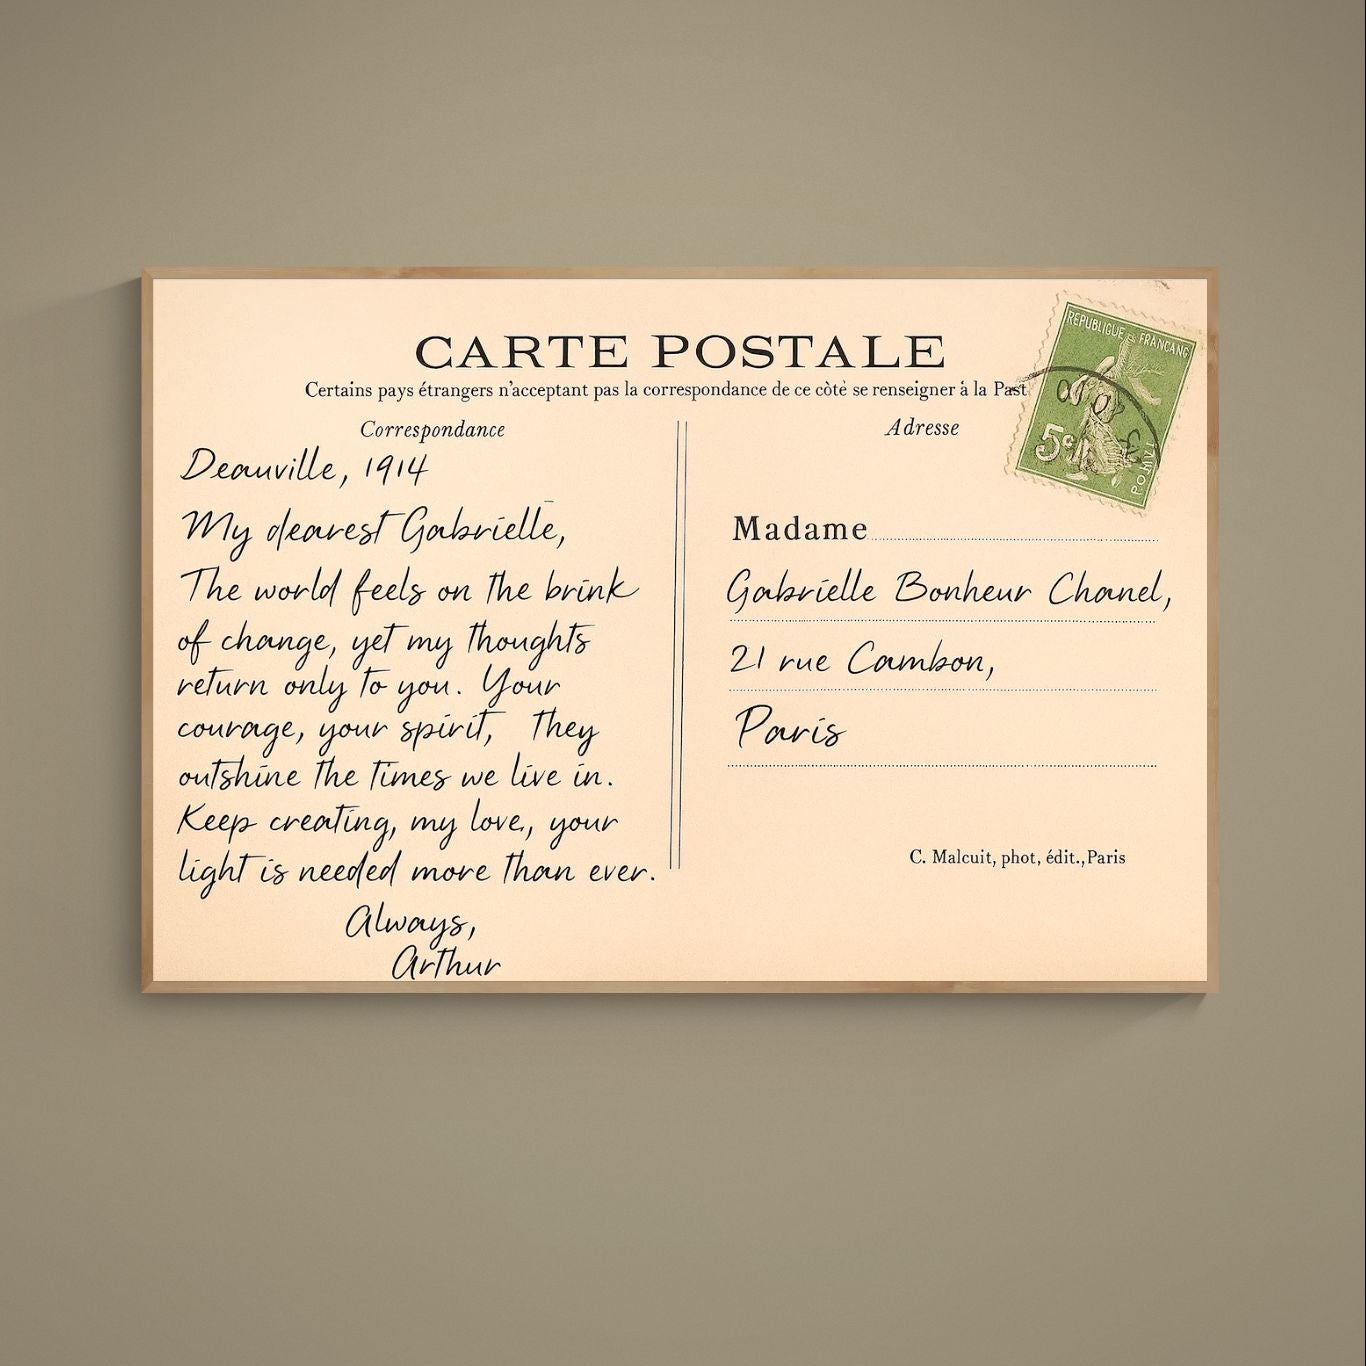 CARTE POSTALE
Certains pays étrangers n'acceptant pas la correspondance de ce còtè se renseigner à la Past
Correspondance
Deauville, 1914
My dearest Gabrielle,
The world feels on the brink
of change, yet my thoughts
return only to you. Your
courage, your spirit, They
outshine the times we live in.
Keep creating, my love,, your
light is needed more than ever.
Always,
Arthur
Adresse
REPUBLIQUE FRANCANG
5c
Madame
Gabrielle Bonheur Chanel,
21 rue Cambon,
Paris
C. Malcuit, phot, édit.,Paris